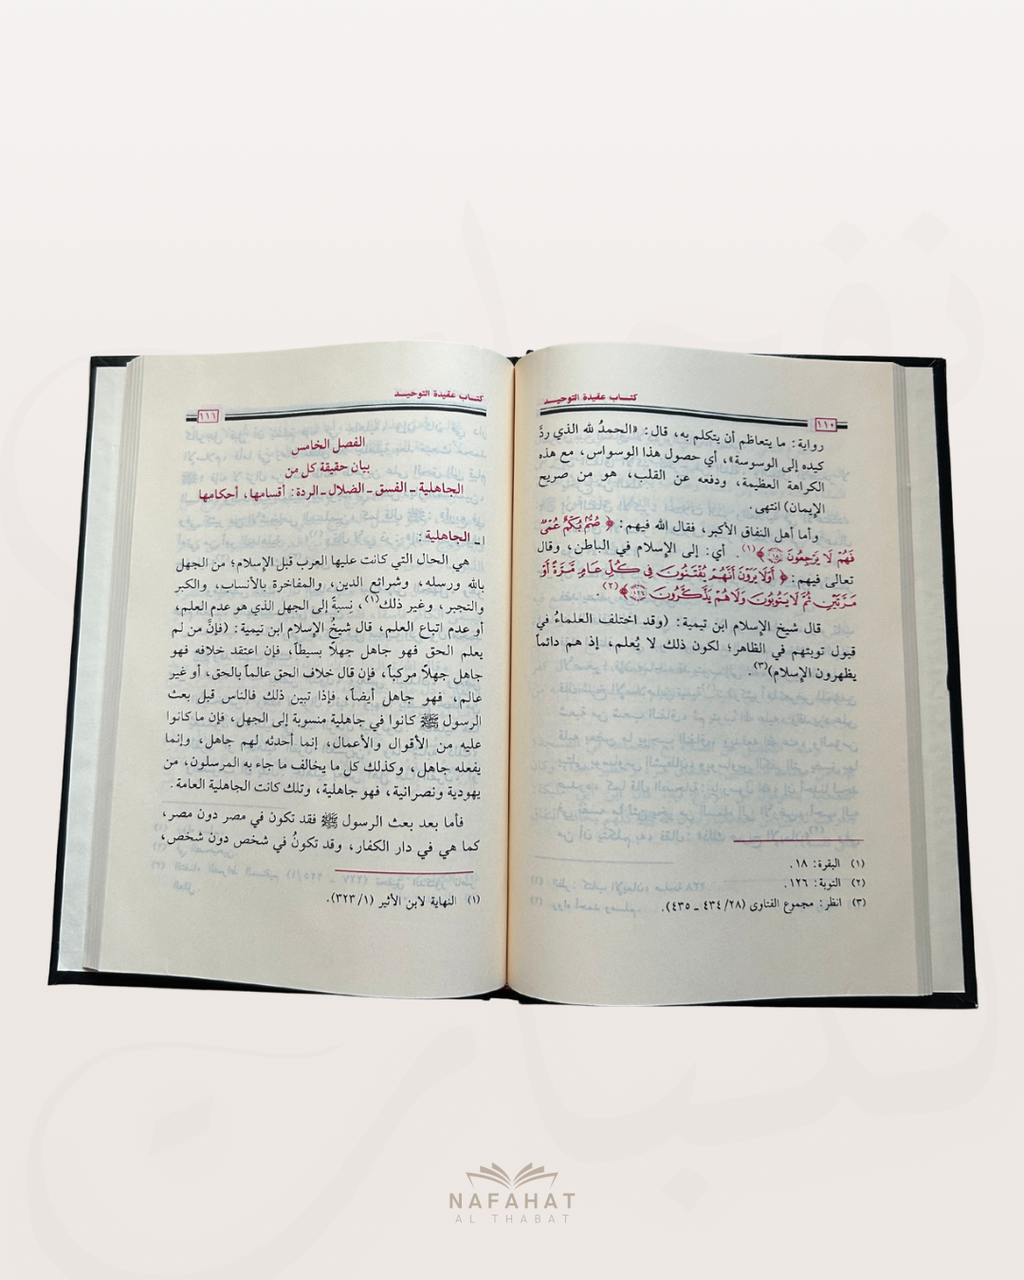 كتـــاب عقيدة التوحيـــد
١١٠
رواية: ما يتعاظم أن يتكلم به، قال: «الحمدُ لله الذي ردَّ
كيده إلى الوسوسة»، أي حصول هذا الوسواس، مع هذه
الكراهة العظيمة، ودفعه عن القلب، هو من صريح
الإيمان) انتهى.
وأما أهل النفاق الأكبر، فقال الله فيهم: ﴿ صُمٌّ بُكْمٌ عُمْىٌ
فَهُمْ لَا يَرْجِعُونَ ١٨ ﴾(١). أي: إلى الإسلام في الباطن، وقال
تعالى فيهم: ﴿ أَوَلَا يَرَوْنَ أَنَّهُمْ يُفْتَنُونَ فِى كُلِّ عَامٍ مَّرَّةً أَوْ
مَرَّتَيْنِ ثُمَّ لَا يَتُوبُونَ وَلَا هُمْ يَذَّكَّرُونَ ١٢٦ ﴾(٢).
قال شيخ الإسلام ابن تيمية: (وقد اختلف العلماءُ في
قبول توبتهم في الظاهر؛ لكون ذلك لا يُعلم، إذ هم دائماً
يظهرون الإسلام)(٣).
(١) البقرة: ١٨.
(٢) التوبة: ١٢٦.
(٣) انظر: مجموع الفتاوى (٤٣٤/٢٨ ـ ٤٣٥).
كتـــاب عقيدة التوحيـــد
١١٦
الفصل الخامس
بيان حقيقة كل من
الجاهلية ـ الفسق ـ الضلال ـ الردة: أقسامها، أحكامها
١ ـ الجاهلية:
هي الحال التي كانت عليها العرب قبل الإسلام؛ من الجهل
بالله ورسله، وشرائع الدين، والمفاخرة بالأنساب، والكبر
والتجبر، وغير ذلك(١)، نِسبةً إلى الجهل الذي هو عدم العلم،
أو عدم اتباع العلم، قال شيخُ الإسلام ابن تيمية: (فإنَّ من لم
يعلم الحق فهو جاهل جهلاً بسيطاً، فإن اعتقد خلافه فهو
جاهل جهلاً مركباً، فإن قال خلاف الحق عالماً بالحق، أو غير
عالم، فهو جاهل أيضاً، فإذا تبين ذلك فالناس قبل بعث
الرسول ﷺ كانوا في جاهلية منسوبة إلى الجهل، فإن ما كانوا
عليه من الأقوال والأعمال، إنما أحدثه لهم جاهل، وإنما
يفعله جاهل، وكذلك كل ما يخالف ما جاء به المرسلون، من
يهودية ونصرانية، فهو جاهلية، وتلك كانت الجاهلية العامة.
فأما بعد بعث الرسول ﷺ فقد تكون في مصر دون مصر،
كما هي في دار الكفار، وقد تكونُ في شخص دون شخص،
(١) النهاية لابن الأثير (٣٢٣/١).
NAFAHAT
AL THABAT